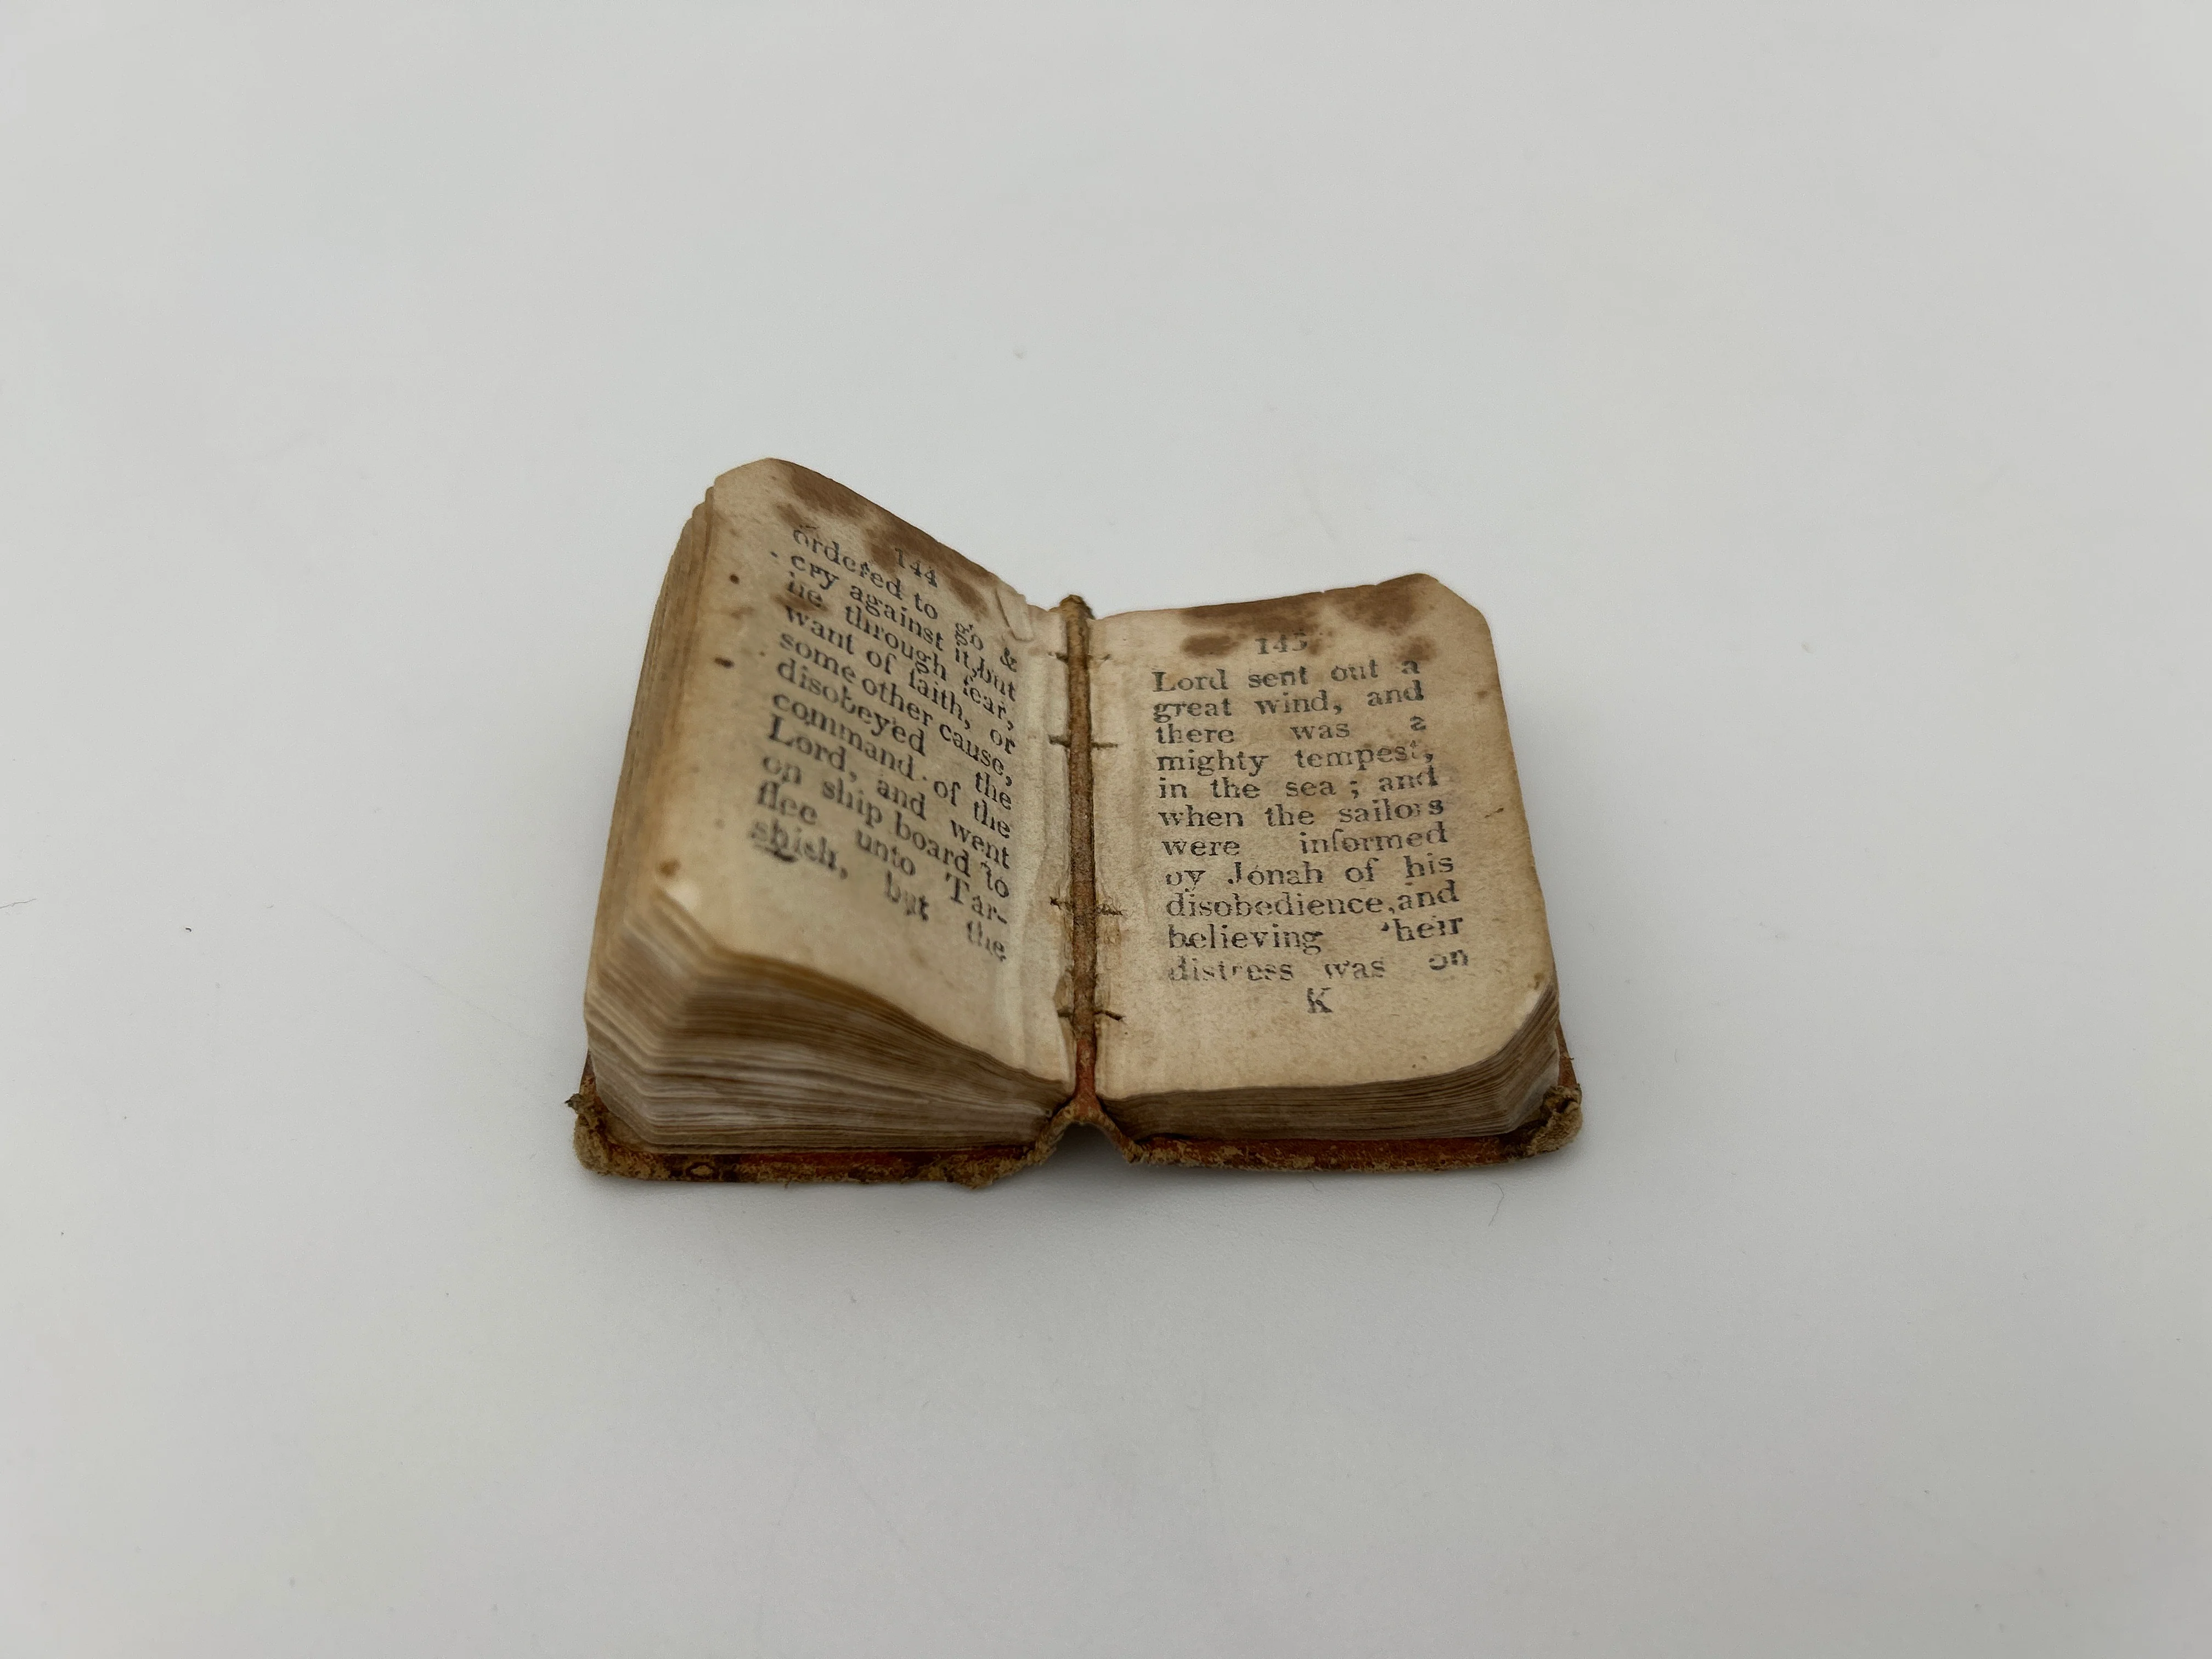 144
ordered to go &
cry against it, but
he through fear,
want of faith, or
some other cause,
disobeyed the
command of the
Lord, and went
on ship board to
flee unto Tar-
shish, but the
145
Lord sent out a
great wind, and
there was a
mighty tempest,
in the sea ; and
when the sailors
were informed
by Jonah of his
disobedience, and
believing their
distress was on
K